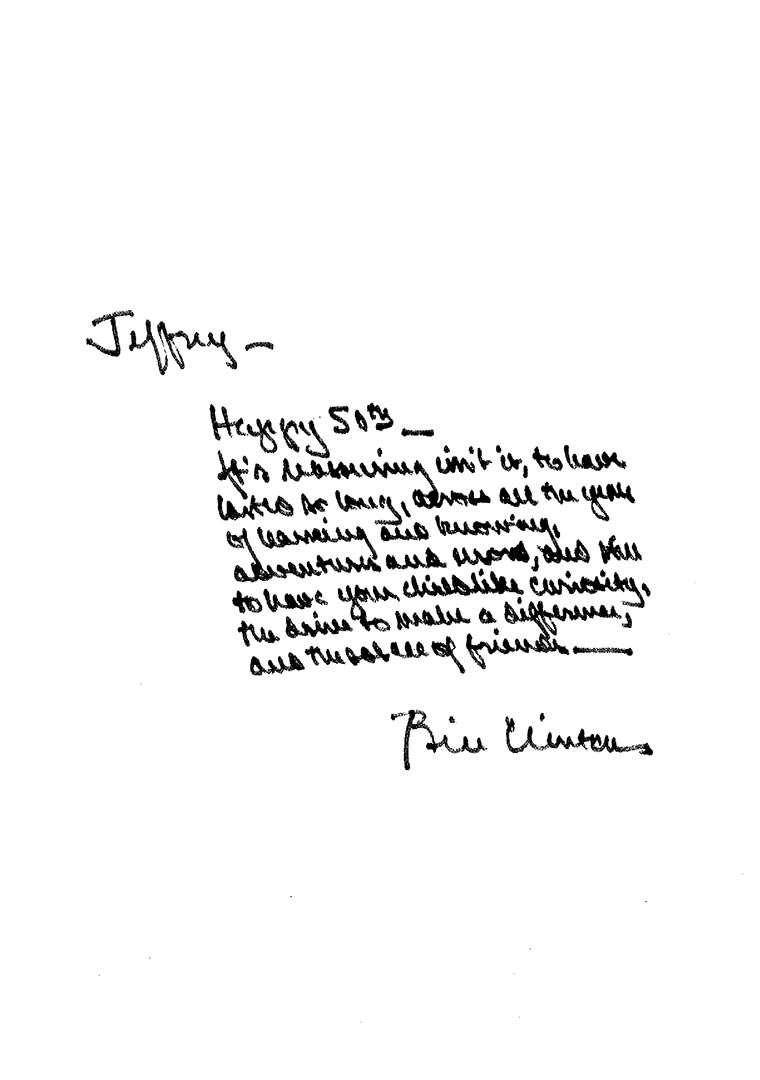 Jeffrey —
Happy 50th —
It's reassuring isn't it, to have
lasted so long, across all the years
of learning and knowing,
adventures and [illegible], and still
to have your childlike curiosity,
the drive to make a difference,
and the solace of friends —
Bill Clinton